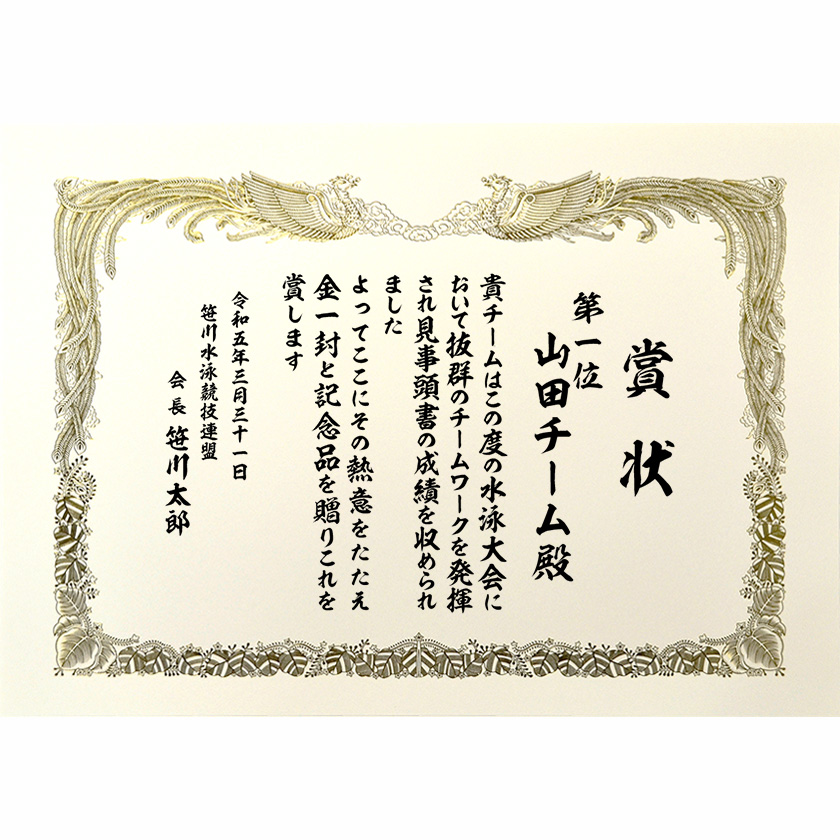 賞状
第一位
山田チーム殿
貴チームはこの度の水泳大会に
おいて抜群のチームワークを発揮
され見事頭書の成績を収められ
ました
よってここにその熱意をたたえ
金一封と記念品を贈りこれを
賞します
令和五年三月三十一日
笹川水泳競技連盟
会長 笹川太郎